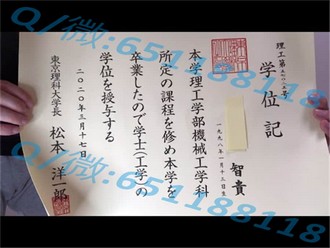 学位記
智貴
一九九八年一月十三日生
本学理工学部機械工学科
所定の課程を修め本学を
卒業したので学士(工学)の
学位を授与する
二〇二〇年三月十七日
東京理科大学長 松本洋一郎
Q/微:651188118
Q/微:651188118